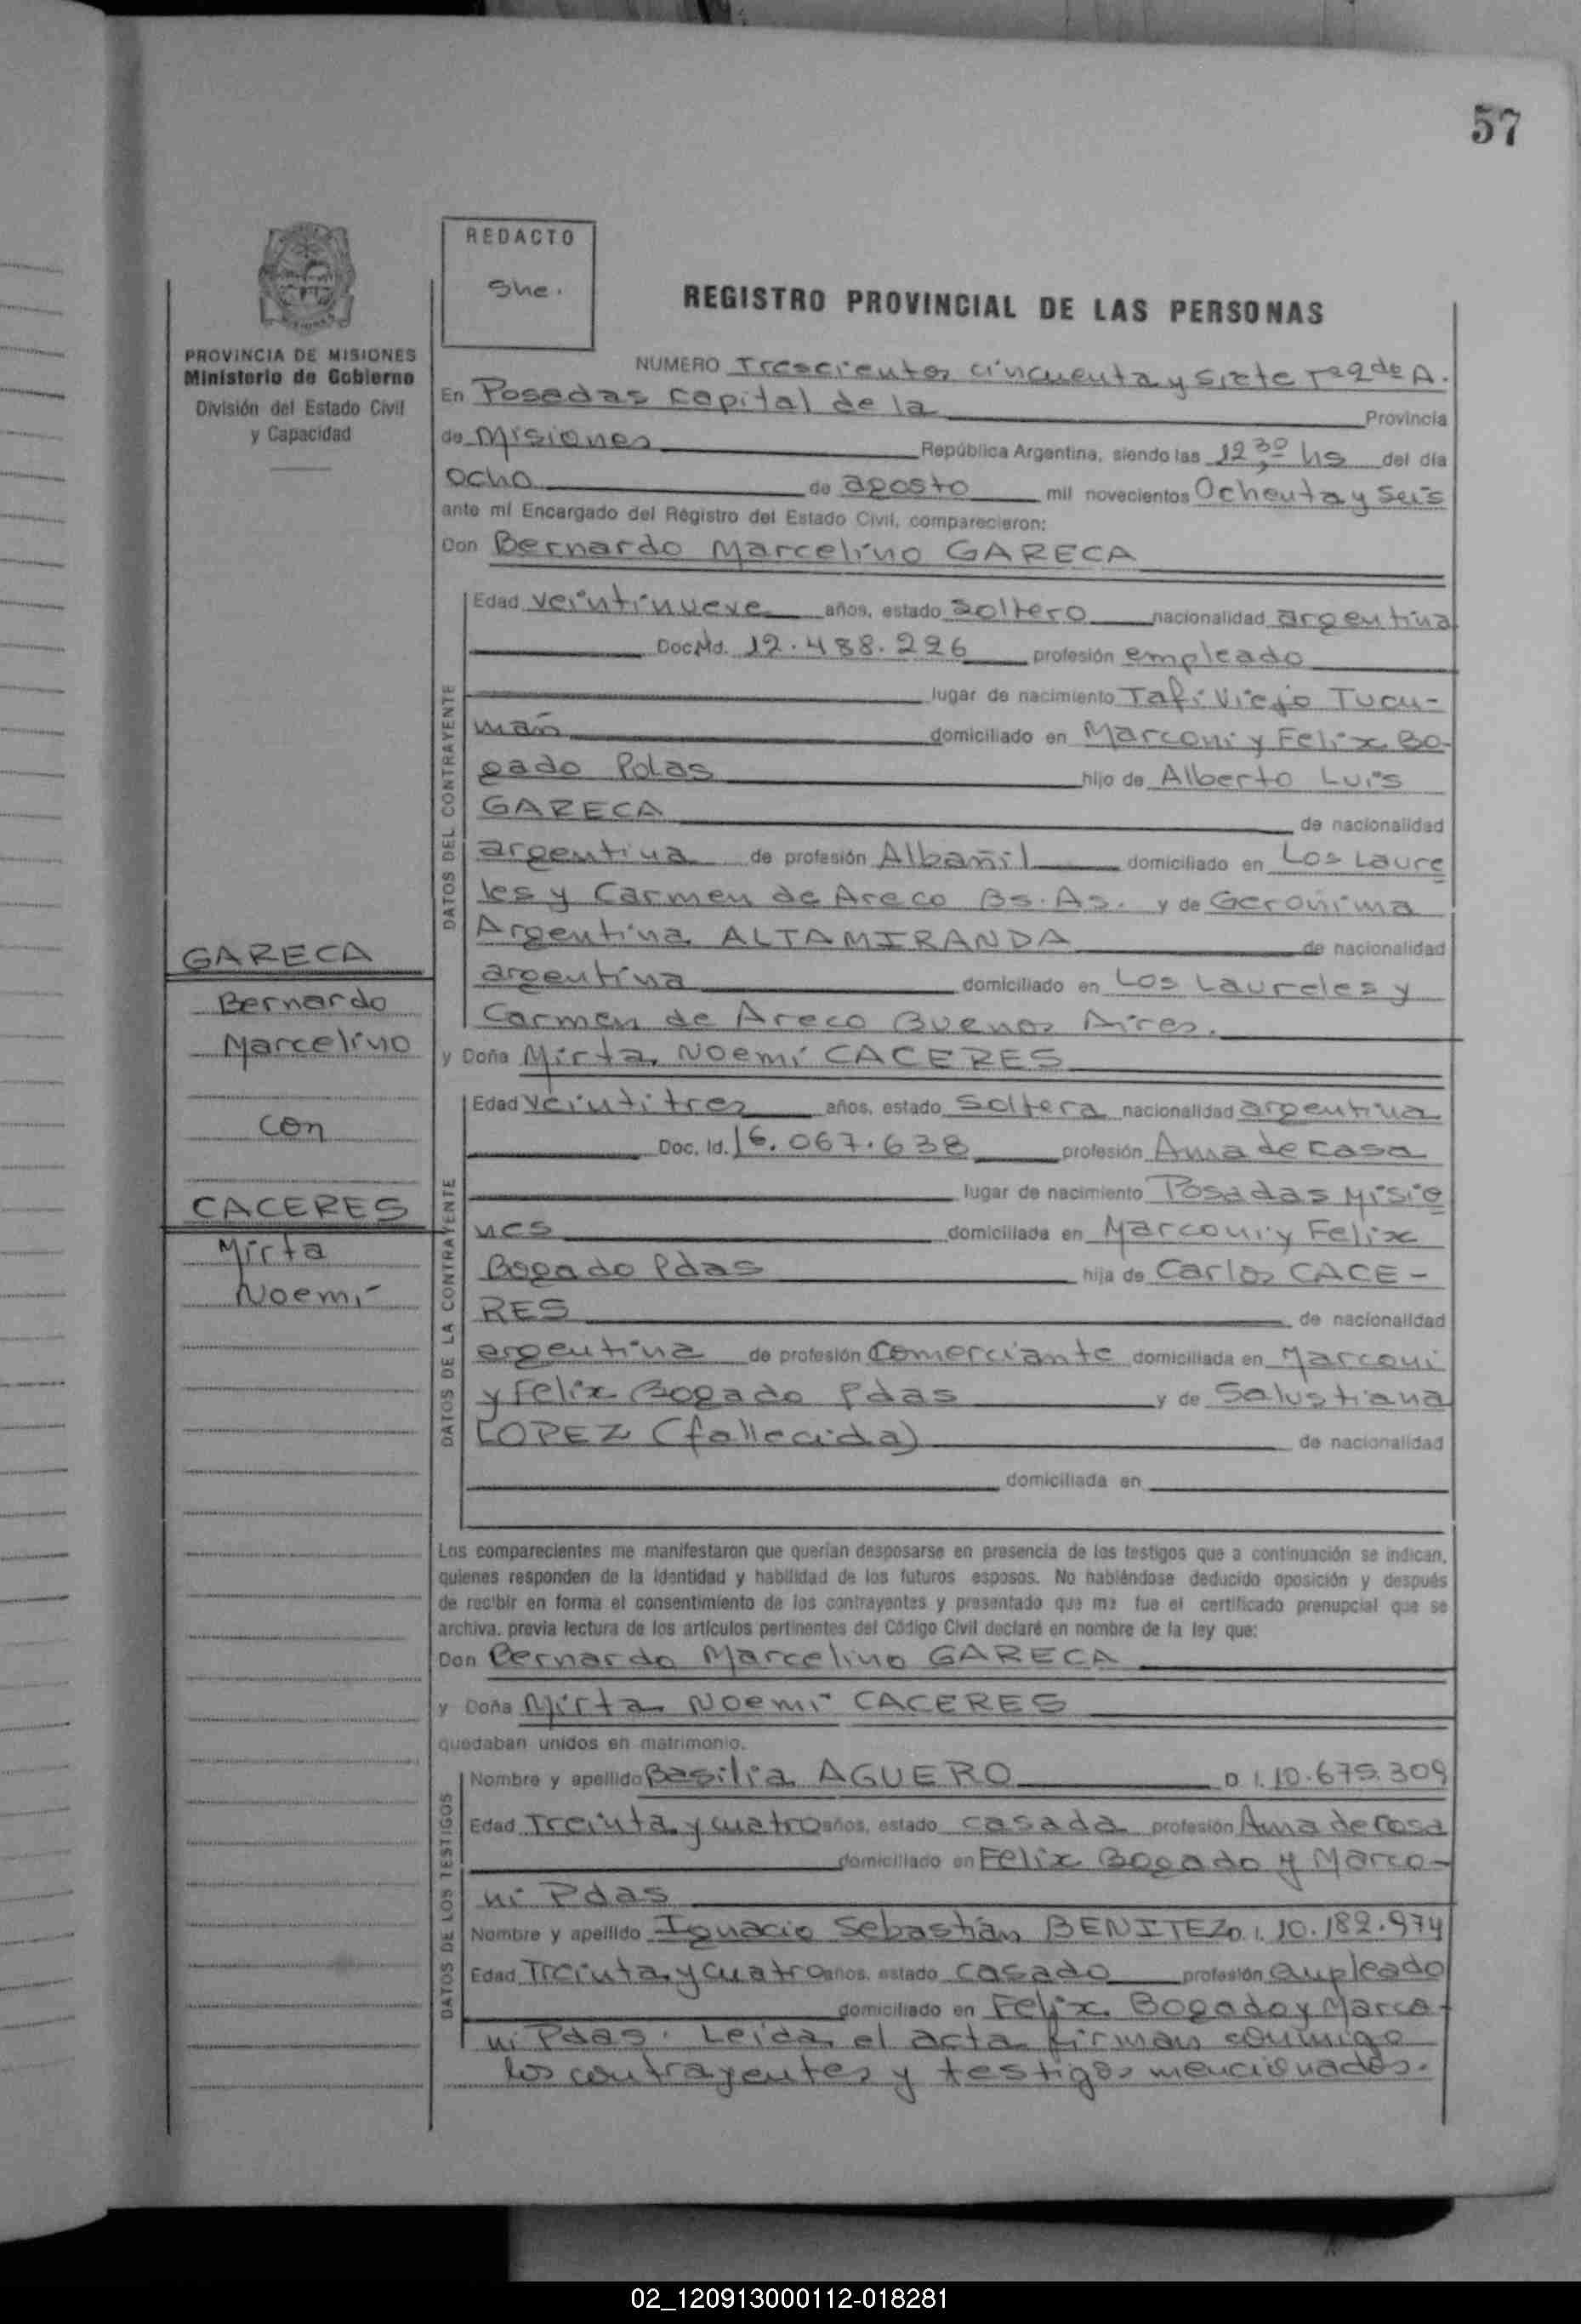 57
REDACTO
She.
REGISTRO PROVINCIAL DE LAS PERSONAS
PROVINCIA DE MISIONES
Ministerio de Gobierno
División del Estado Civil
y Capacidad
NUMERO Trescientos cincuenta y siete
En Posadas capital de la Provincia
de Misiones República Argentina, siendo las 12,30 hs del día
ocho de agosto mil novecientos Ochenta y Seis
ante mí Encargado del Registro del Estado Civil, comparecieron:
Don Bernardo Marcelino GARECA
DATOS DEL CONTRAYENTE
Edad veintinueve años, estado soltero nacionalidad argentina
Doc. Id. 12.488.226 profesión empleado
lugar de nacimiento Tafi Viejo Tucu-
mán domiciliado en Marconi y Felix Bo-
gado Pdas hijo de Alberto Luis
GARECA de nacionalidad
argentina de profesión Albañil domiciliado en Los Laure
les y Carmen de Areco Bs. As. y de Geronima
Argentina ALTAMIRANDA de nacionalidad
argentina domiciliado en Los Laureles y
Carmen de Areco Buenos Aires.
y Doña Mirta Noemí CACERES
DATOS DE LA CONTRAYENTE
Edad veintitres años, estado Soltera nacionalidad argentina
Doc. Id. 16.067.638 profesión Ama de casa
lugar de nacimiento Posadas Misio
nes domiciliada en Marconi y Felix
Bogado Pdas hija de Carlos CACE-
RES de nacionalidad
argentina de profesión Comerciante domiciliada en Marconi
y Felix Bogado Pdas y de Salustiana
LOPEZ (fallecida) de nacionalidad
domiciliada en
Los comparecientes me manifestaron que querían desposarse en presencia de los testigos que a continuación se indican,
quienes responden de la identidad y habilidad de los futuros esposos. No habiéndose deducido oposición y después
de recibir en forma el consentimiento de los contrayentes y presentado que me fue el certificado prenupcial que se
archiva, previa lectura de los artículos pertinentes del Código Civil declaré en nombre de la ley que:
Don Bernardo Marcelino GARECA
y Doña Mirta Noemí CACERES
quedaban unidos en matrimonio.
DATOS DE LOS TESTIGOS
Nombre y apellido Basilia AGUERO D I. 10.675.309
Edad Treinta y cuatro años, estado casada profesión Ama de casa
domiciliado en Felix Bogado y Marco-
ni Pdas
Nombre y apellido Ignacio Sebastián BENITEZ D. I. 10.182.974
Edad Treinta y cuatro años, estado casado profesión empleado
domiciliado en Felix Bogado y Marco-
ni Pdas. Leída el acta firman conmigo
los contrayentes y testigos mencionados.
GARECA
Bernardo
Marcelino
con
CACERES
Mirta
Noemí
02_120913000112-018281